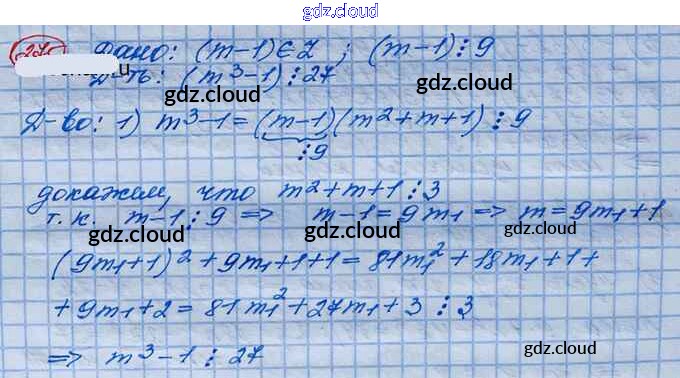 gdz.cloud
gdz.cloud
Дано: (m-1)∈Z ; (m-1)⋮9
Д-ть: (m³-1)⋮27
gdz.cloud
gdz.cloud
Д-во: 1) m³-1=(m-1)(m²+m+1)⋮9
⋮9
докажем, что m²+m+1⋮3
т.к. m-1⋮9 => m-1=9m₁ => m=9m₁+1
gdz.cloud
gdz.cloud
gdz.cloud
(9m₁+1)²+9m₁+1+1=81m₁²+18m₁+1+
+9m₁+2=81m₁²+27m₁+3⋮3
gdz.cloud
=> m³-1⋮27
gdz.cloud
gdz.cloud